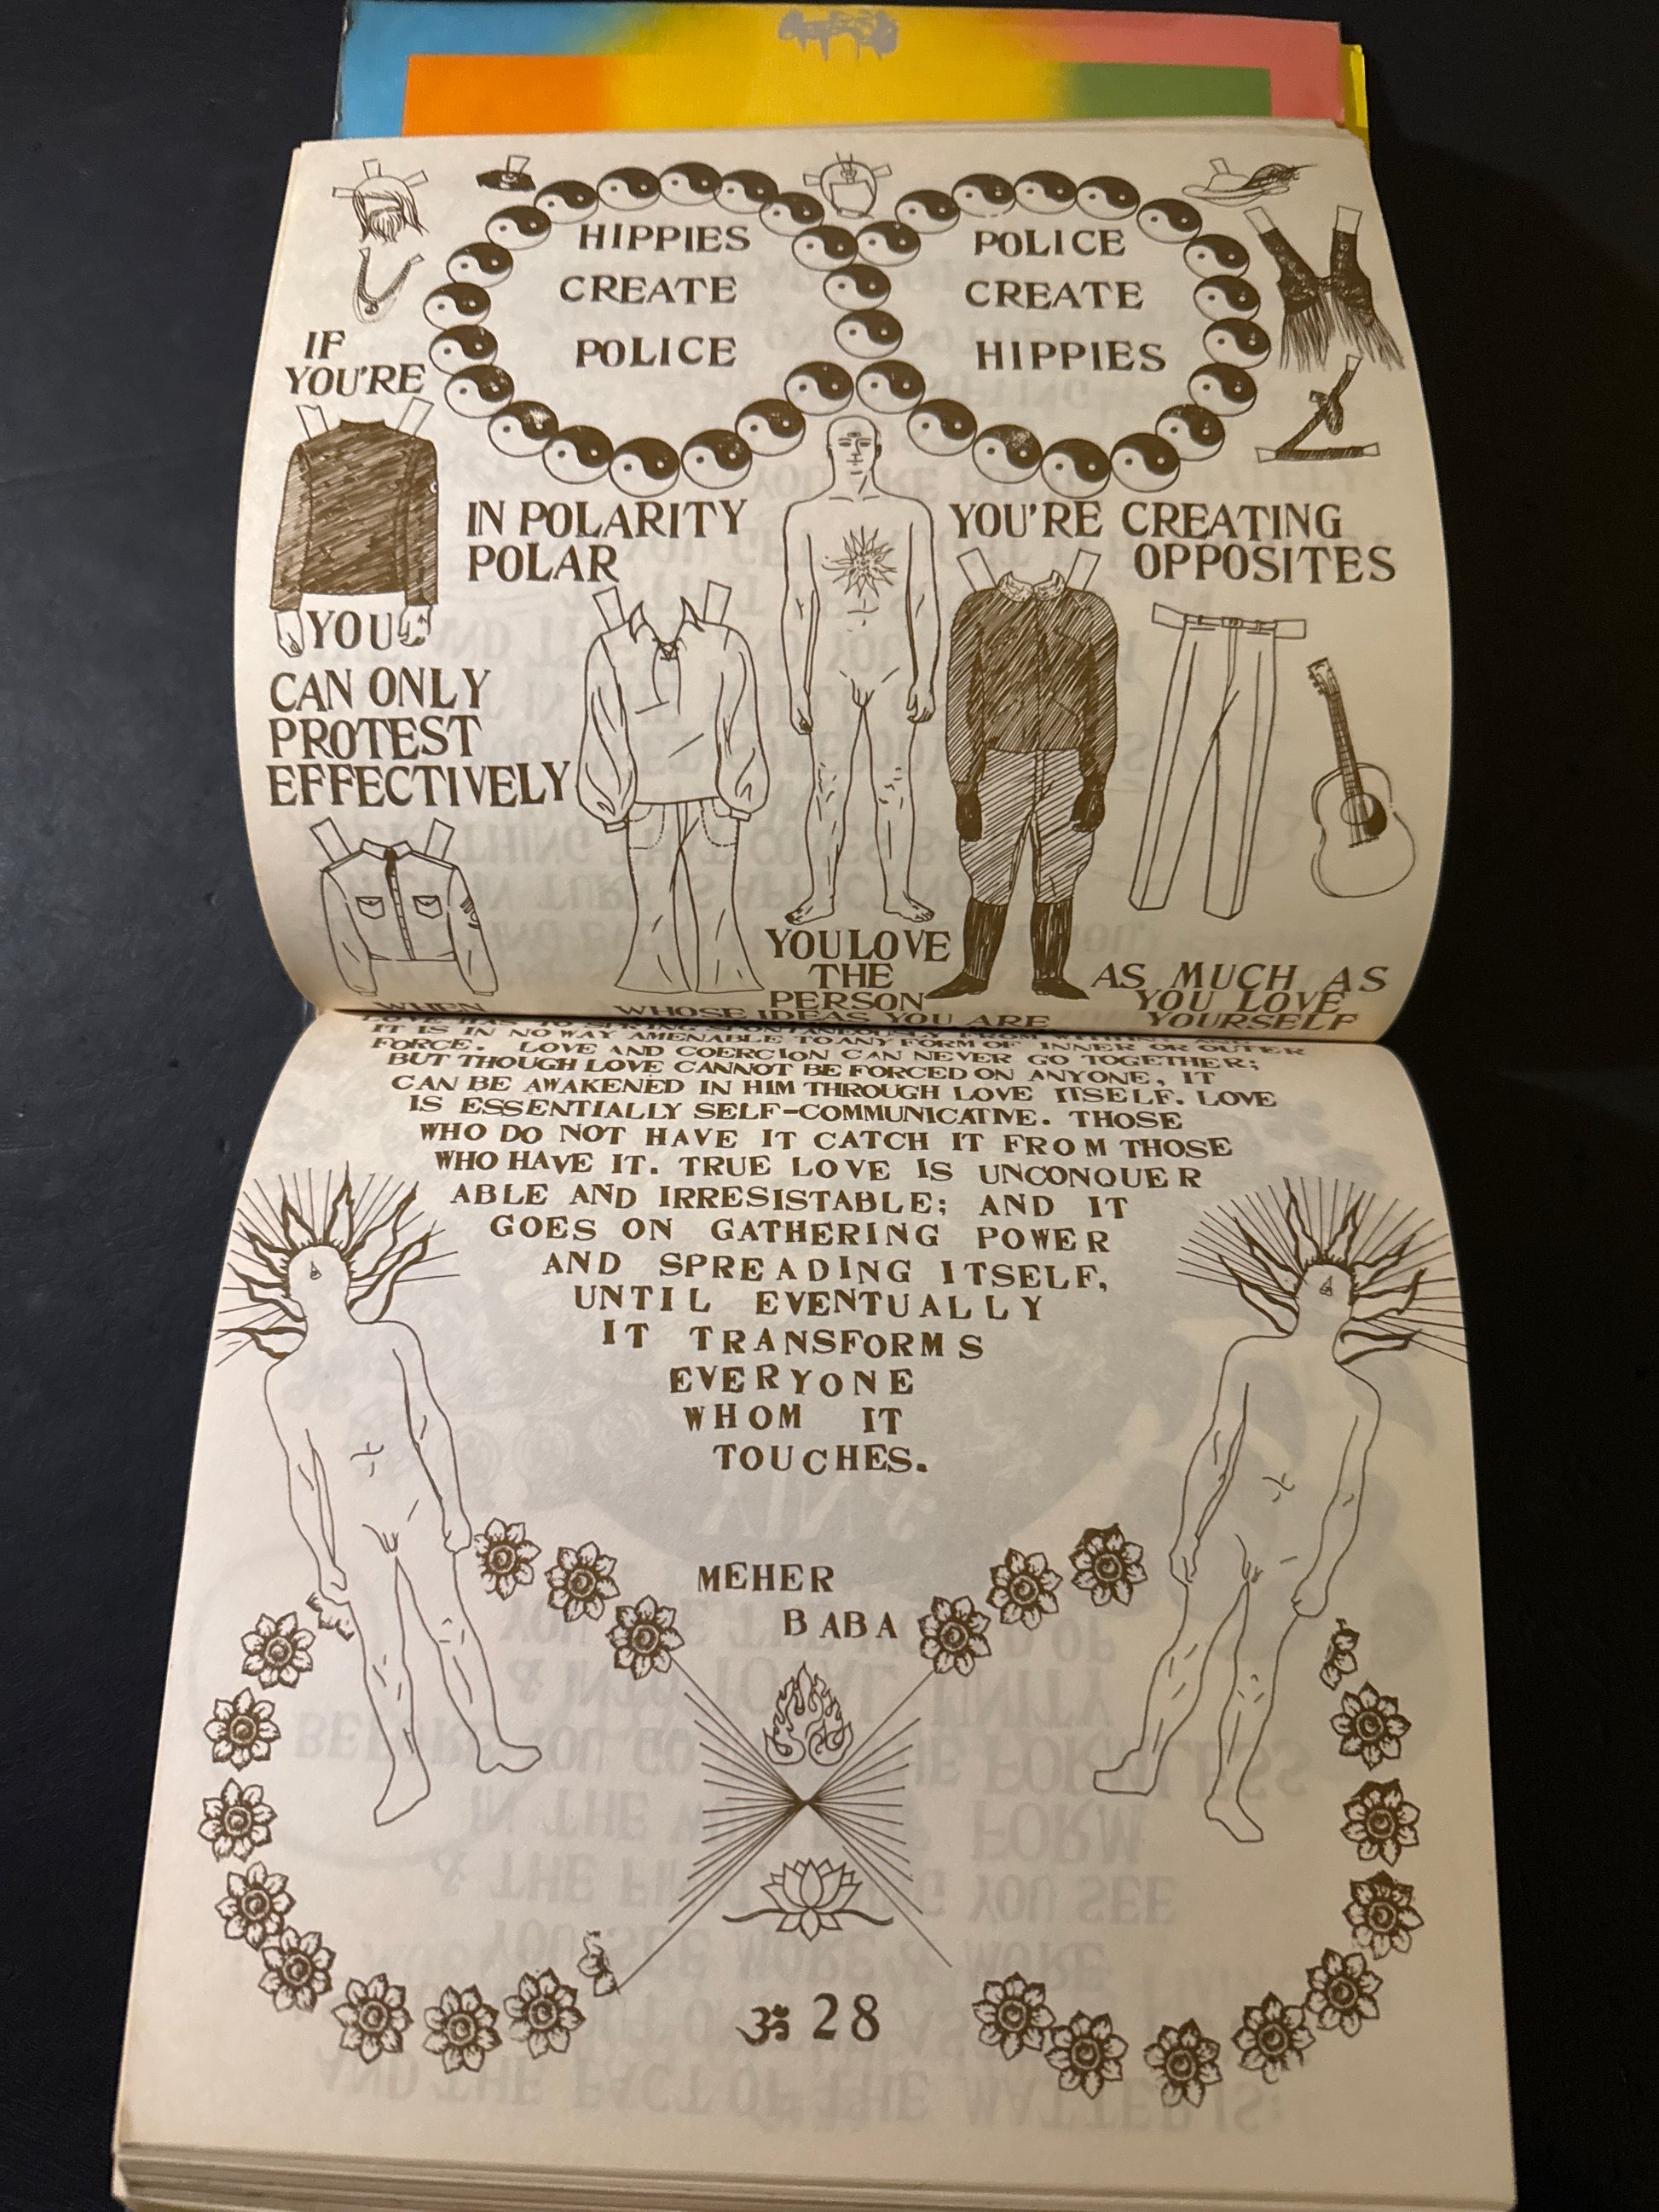 HIPPIES
CREATE
POLICE
POLICE
CREATE
HIPPIES
IF
YOU'RE
IN POLARITY
POLAR
YOU'RE CREATING
OPPOSITES
YOU
CAN ONLY
PROTEST
EFFECTIVELY
WHEN
YOU LOVE
THE
PERSON
WHOSE IDEAS YOU ARE
AS MUCH AS
YOU LOVE
YOURSELF
SPONTANEOUSLY FROM WITHIN
IT IS IN NO WAY AMENABLE TO ANY FORM OF INNER OR OUTER
FORCE. LOVE AND COERCION CAN NEVER GO TOGETHER;
BUT THOUGH LOVE CANNOT BE FORCED ON ANYONE, IT
CAN BE AWAKENED IN HIM THROUGH LOVE ITSELF. LOVE
IS ESSENTIALLY SELF-COMMUNICATIVE. THOSE
WHO DO NOT HAVE IT CATCH IT FROM THOSE
WHO HAVE IT. TRUE LOVE IS UNCONQUER
ABLE AND IRRESISTABLE; AND IT
GOES ON GATHERING POWER
AND SPREADING ITSELF,
UNTIL EVENTUALLY
IT TRANSFORMS
EVERYONE
WHOM IT
TOUCHES.
MEHER
BABA
ॐ 28